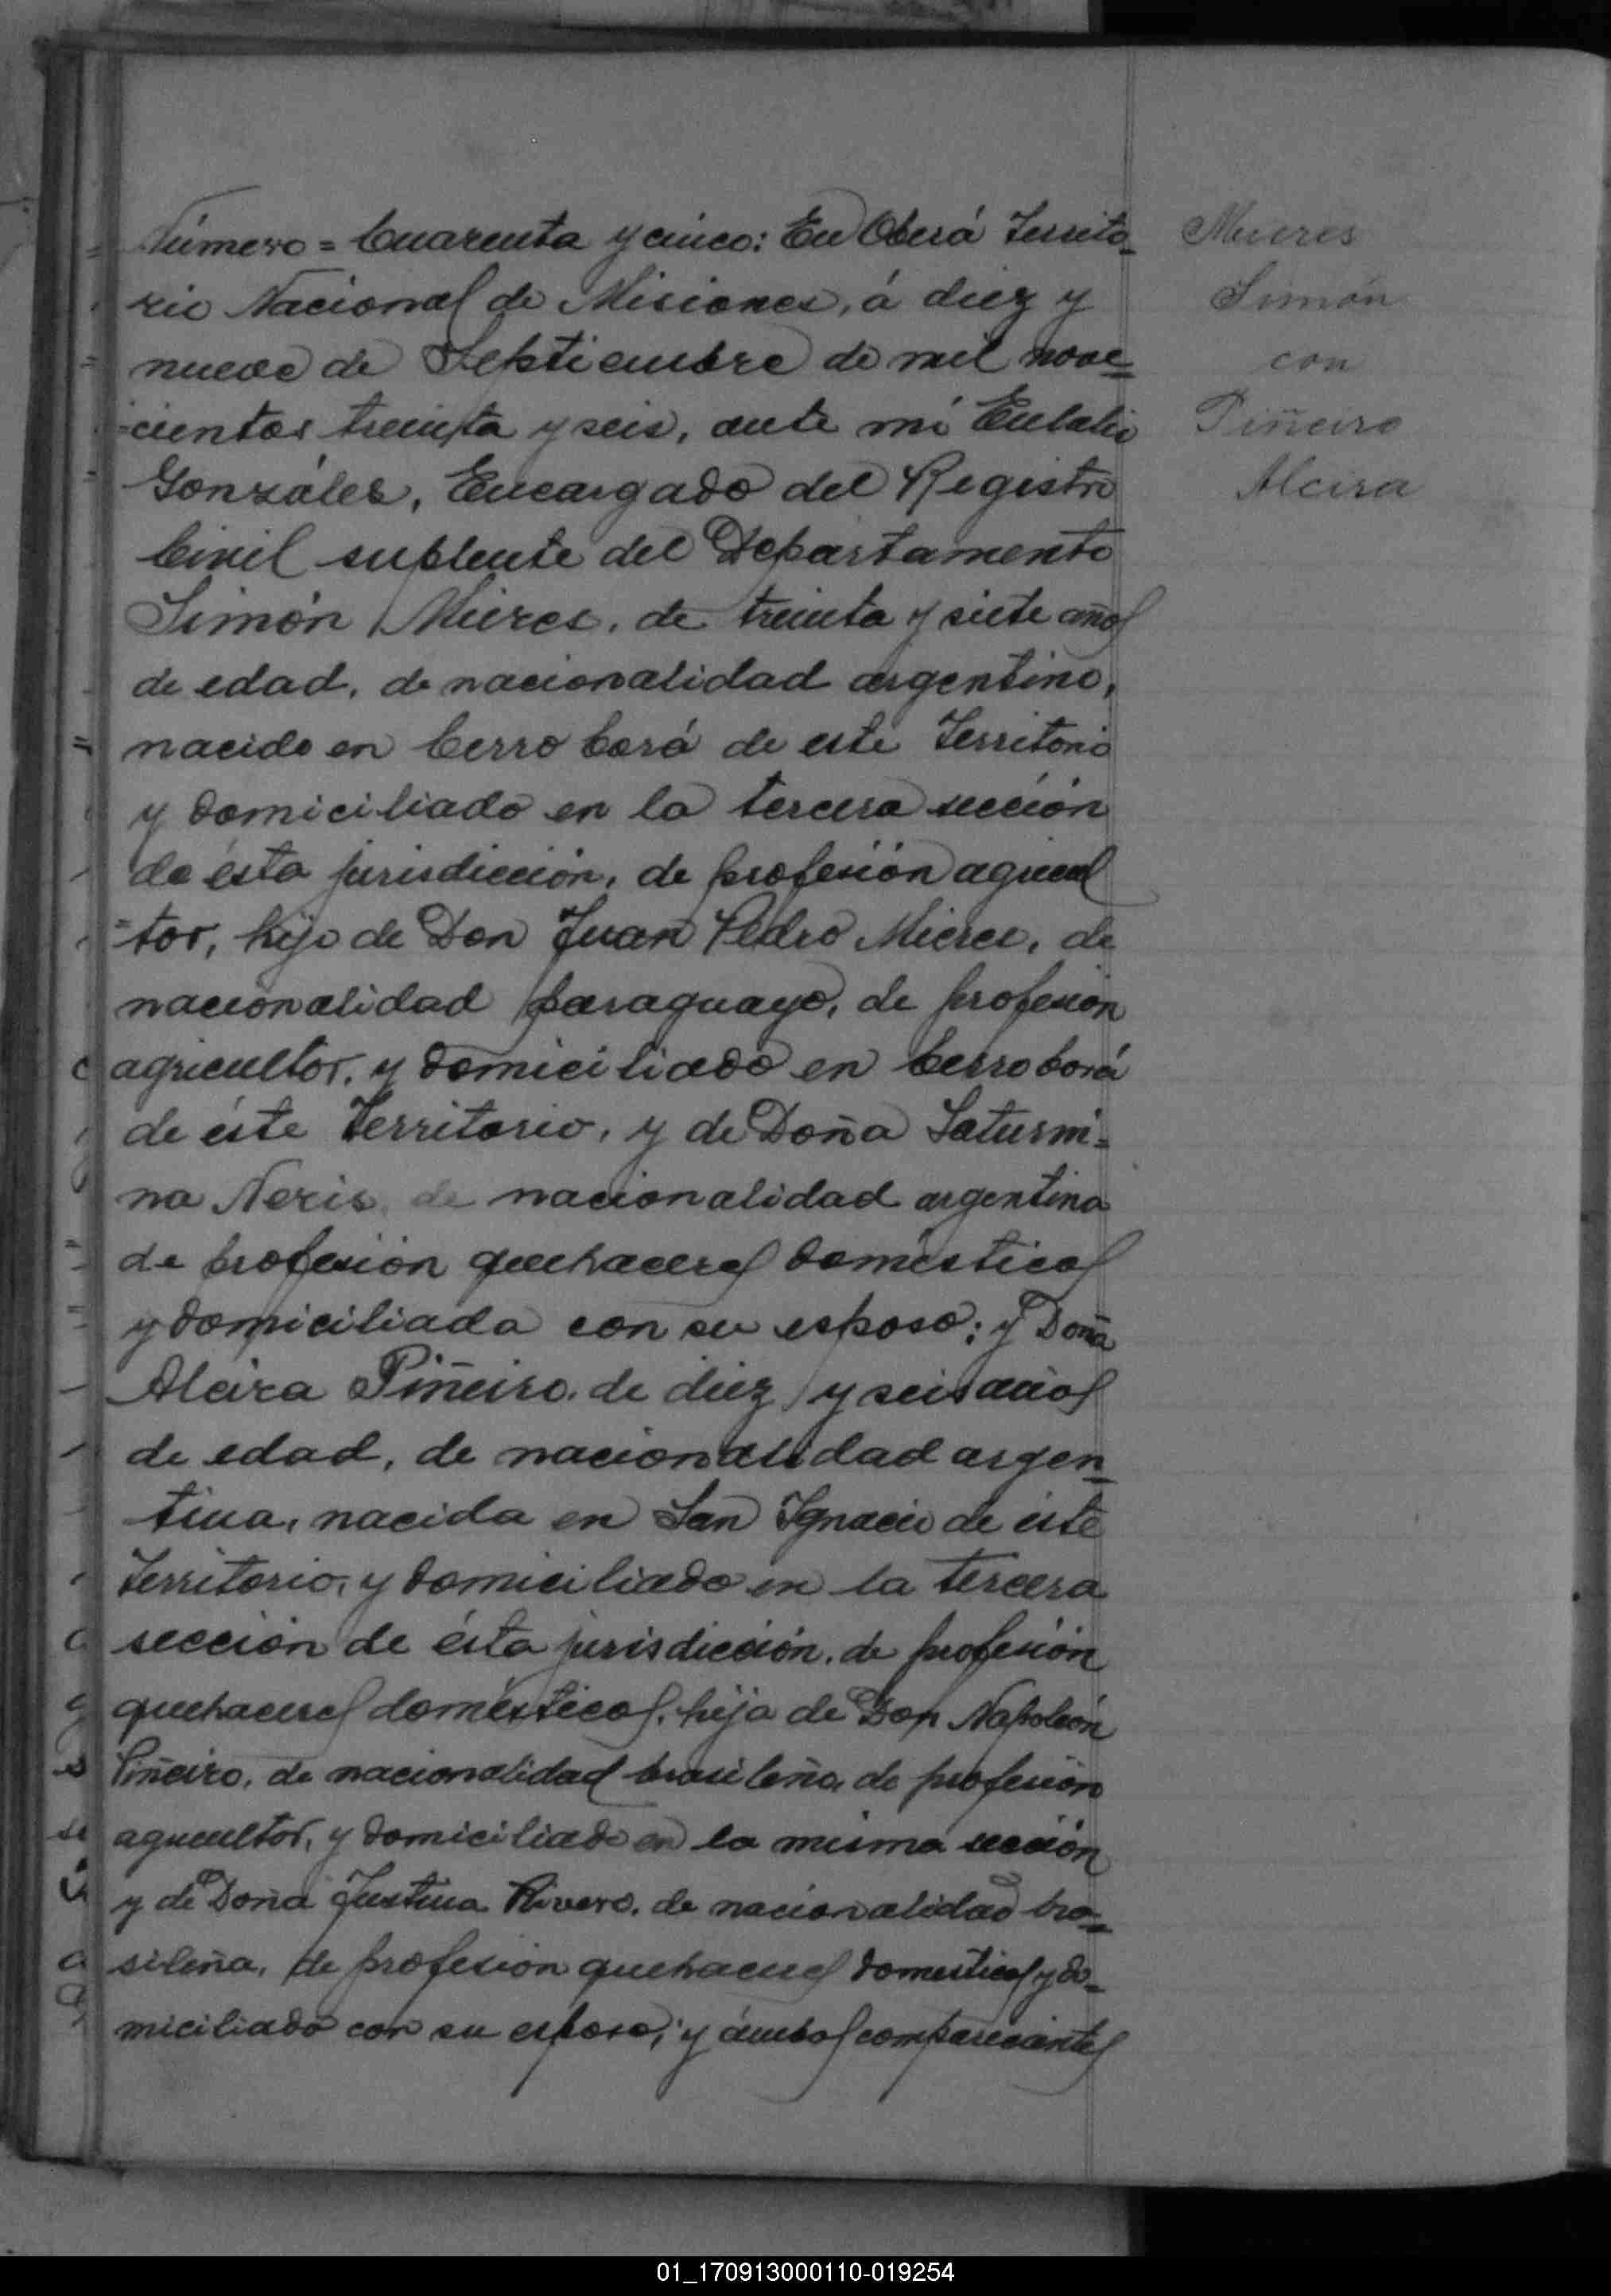 Número = Cuarenta y cinco: En Oberá Territo-
rio Nacional de Misiones, á diez y
nueve de Septiembre de mil nove=
=cientos treinta y seis, ante mí Eulalio
Gonzáles, Encargado del Registro
Civil suplente del Departamento
Simón Mieres, de treinta y siete años
de edad, de nacionalidad argentino,
nacido en Cerro Corá de este Territorio
y domiciliado en la tercera sección
de ésta jurisdicción, de profesión agricul
=tor, hijo de Don Juan Pedro Mieres, de
nacionalidad paraguayo, de profesión
agricultor, y domiciliado en Cerro Corá
de éste Territorio, y de Doña Saturni=
na Neris, de nacionalidad argentina
de profesión quehaceres domésticos
y domiciliada con su esposo; y Doña
Alcira Piñeiro, de diez y seis años
de edad, de nacionalidad argen=
tina, nacida en San Ignacio de éste
Territorio, y domiciliado en la tercera
sección de ésta jurisdicción, de profesión
quehaceres domésticos, hija de Don Napoleón
Piñeiro, de nacionalidad brasileña, de profesión
agricultor, y domiciliado en la misma sección
y de Doña Justina Rivero, de nacionalidad bra=
sileña, de profesión quehaceres domesticos y do-
miciliado con su esposo; y ámbos comparecientes
Mieres
Simón
con
Piñeiro
Alcira
01_170913000110-019254